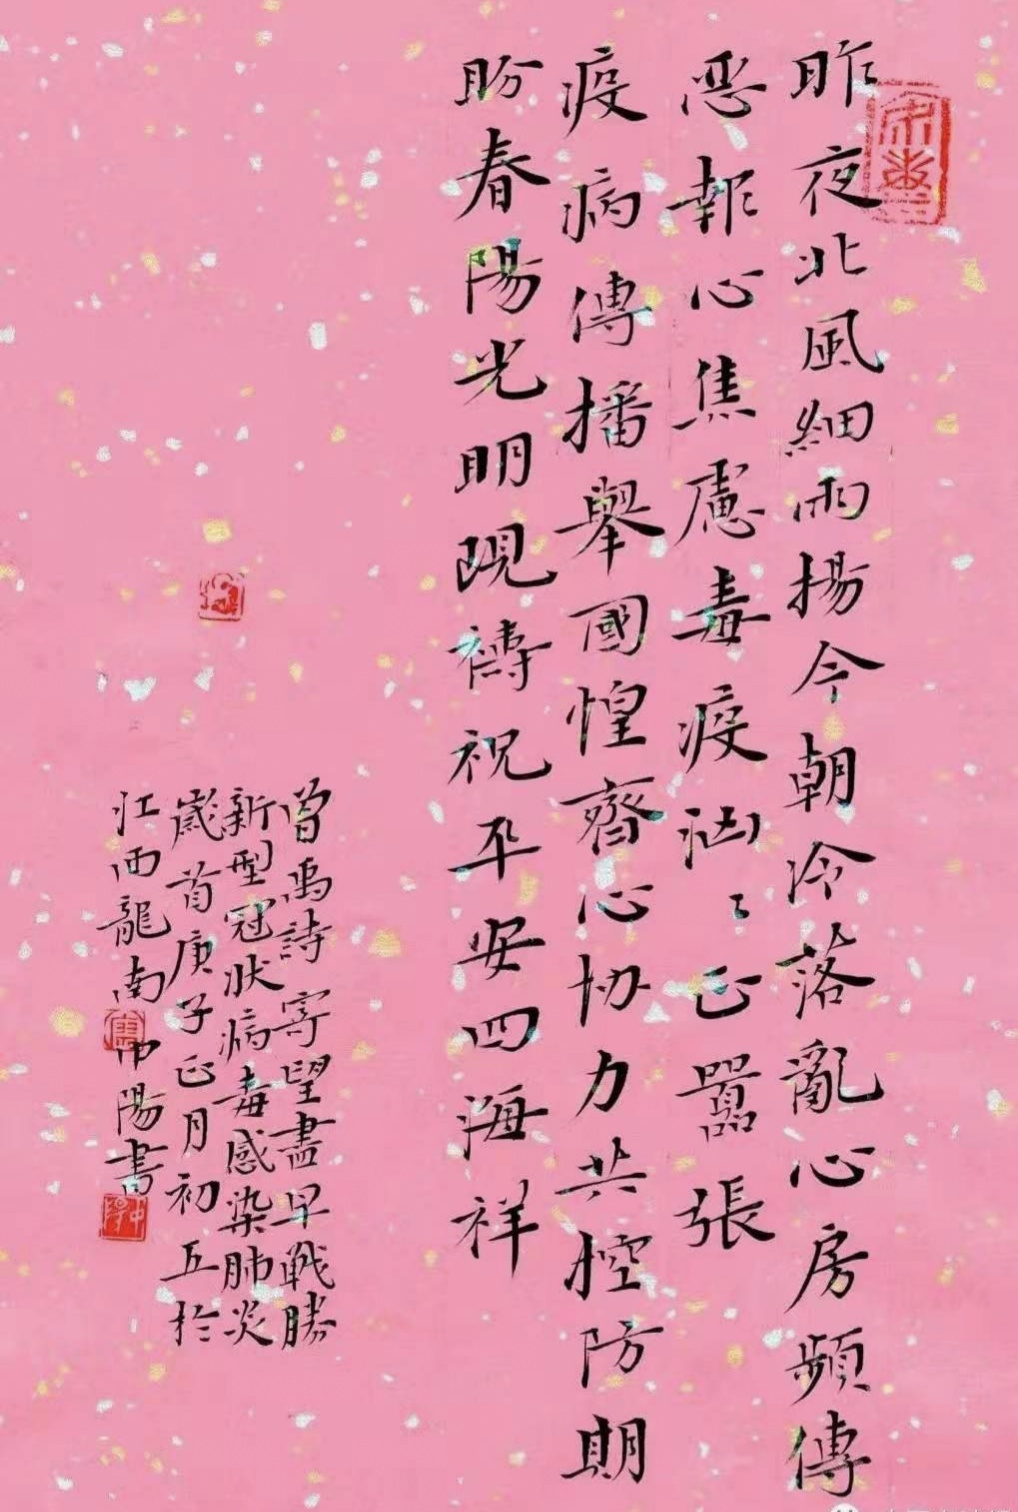 昨夜北風細雨揚今朝冷落亂心房頻傳
惡報心焦慮毒疫汹〻正囂張
疫病傳播舉國惶齊心协力共控防期
盼春陽光明現禱祝平安四海祥
曾禹詩寄望盡早戰勝
新型冠狀病毒感染肺炎
歲首庚子正月初五於
江西龍南中陽書